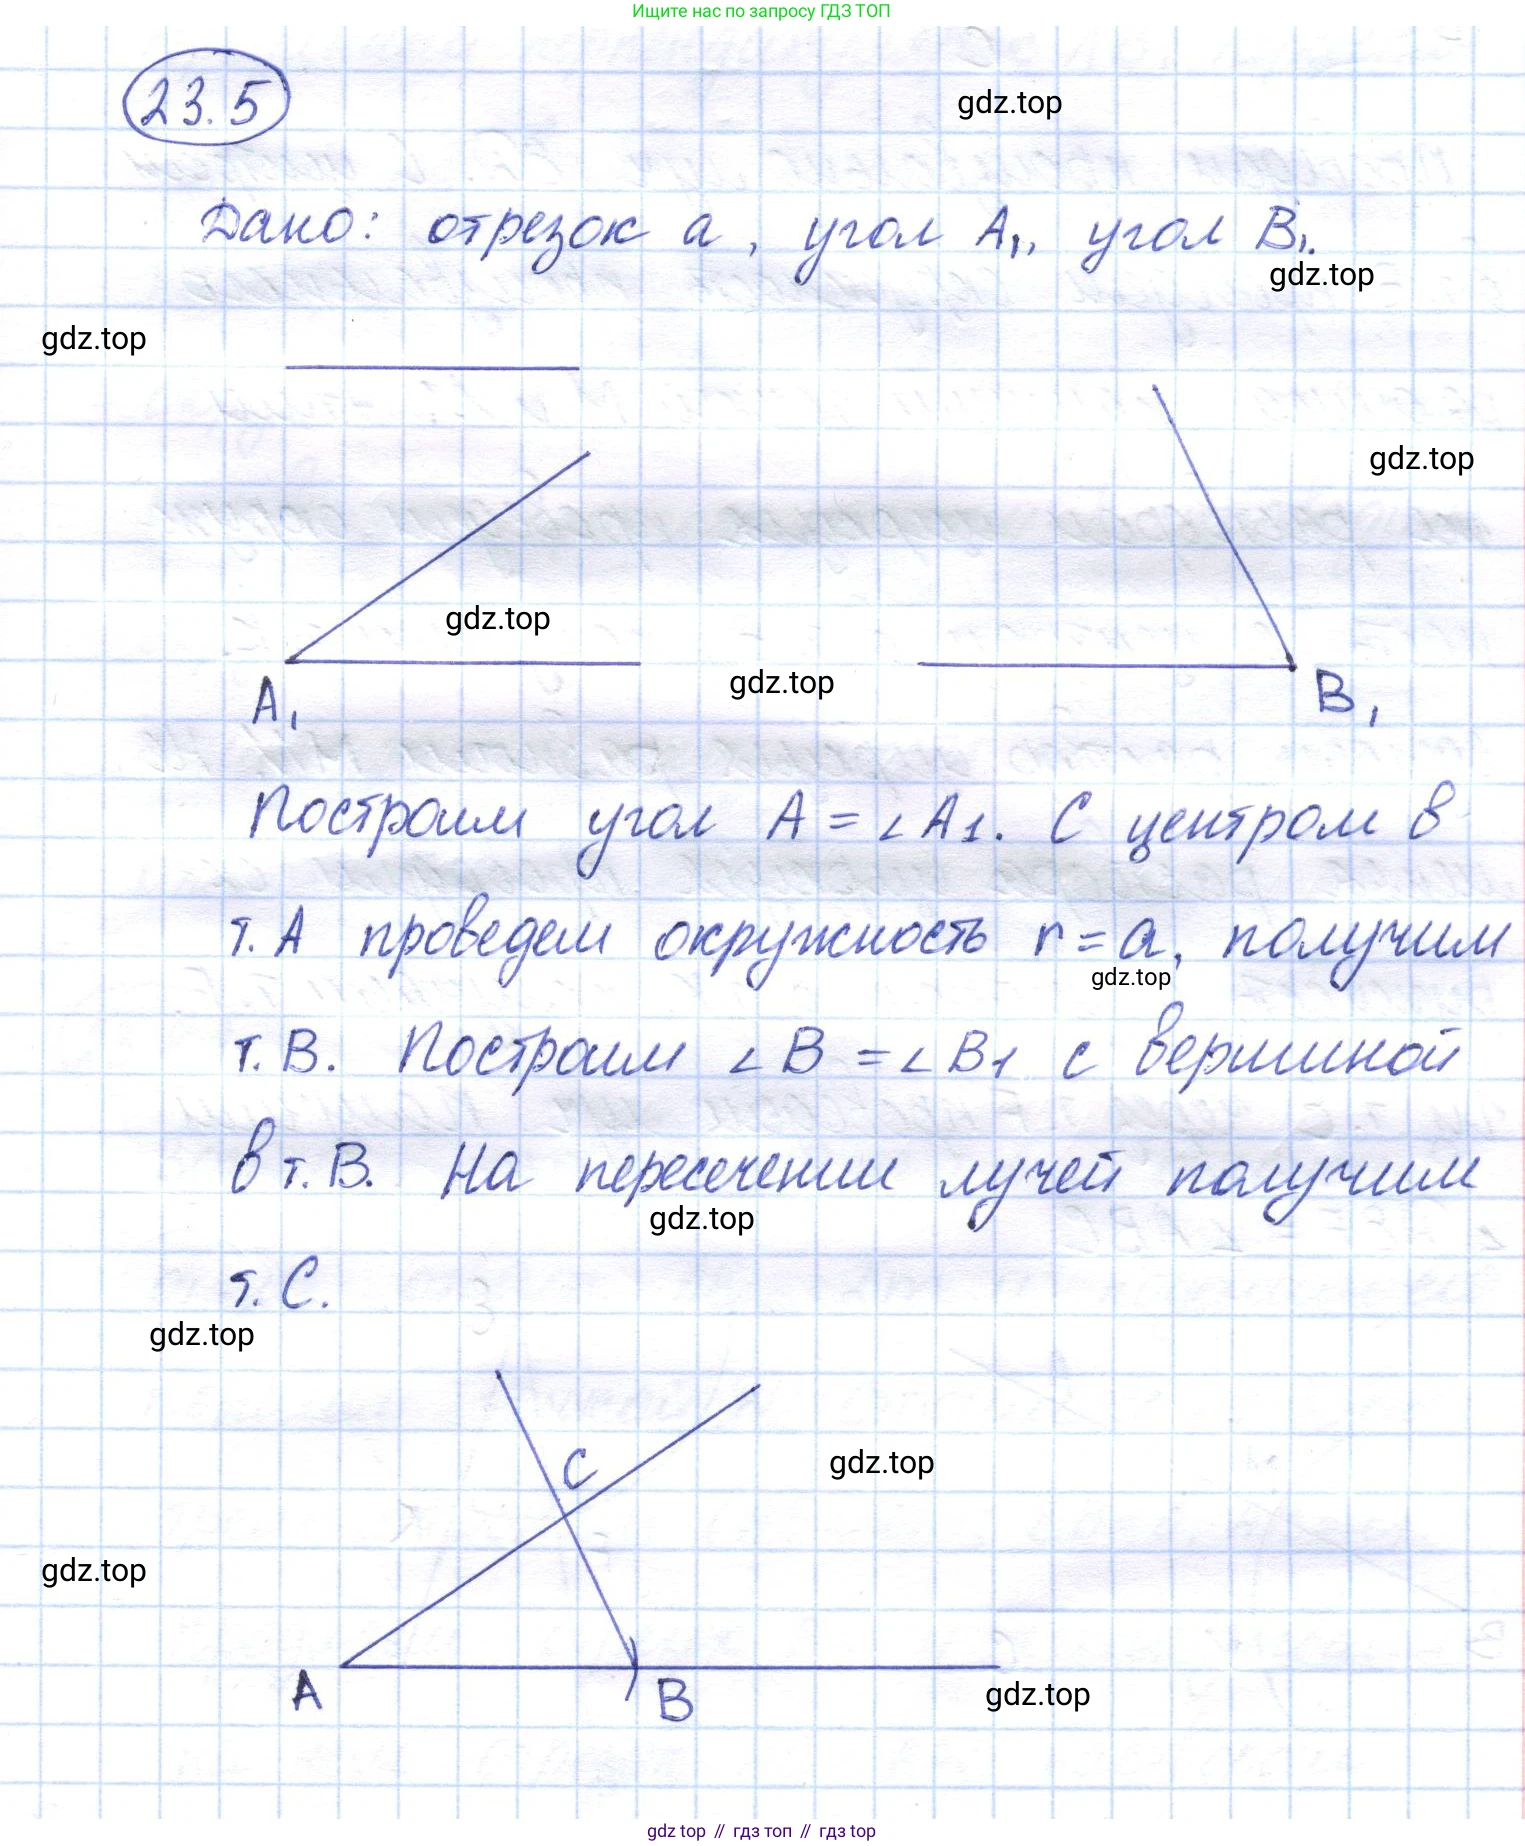 Ищите нас по запросу ГДЗ ТОП
23.5
gdz.top
Дано: отрезок a, угол A₁, угол B₁.
gdz.top
gdz.top
gdz.top
gdz.top
gdz.top
A₁
B₁
Построим угол A = ∠A₁. С центром в
т. A проведем окружность r = a, получим
gdz.top
т. B. Построим ∠B = ∠B₁ с вершиной
в т. B. На пересечении лучей получим
gdz.top
т. C.
gdz.top
C
gdz.top
gdz.top
A
B
gdz.top
gdz top // гдз топ // гдз top